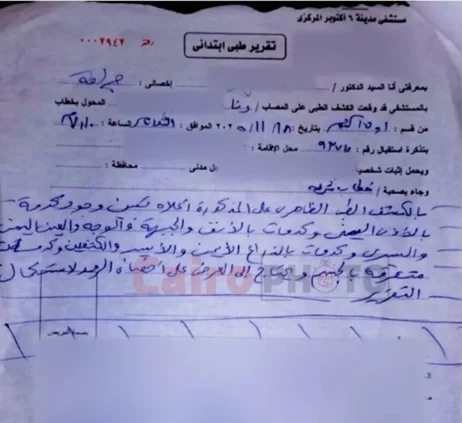 مستشفى مدينة ٦ أكتوبر المركزى
تقرير طبى ابتدائى
رقم ٠٠٠٢٩٤٢
بمعرفتى أنا السيد الدكتور / إخصائى : جراحة
بالمستشفى قد وقعت الكشف الطبى على المصاب / المحول بخطاب
من قسم : أول أكتوبر بتاريخ : ١٨ / ١١ / ٢٠٢٥ الموافق : الثلاثاء الساعة :
بتذكرة استقبال رقم : محل الإقامة :
ويحمل إثبات شخصية مدنى محافظة :
وجاء بصحبة / خطاب شرطة
بالكشف الطبى الظاهرى على المذكورة أعلاه تبين وجود كدمة
بالأذن اليمنى وكدمات بالأنف والجبهة والوجه والعين اليمنى
واليسرى وكدمات بالذراع الأيمن والأيسر والكتفين وكدمات
متفرقة بالجسم ويحتاج إلى العرض على أخصائى الرمد لاستكمال
التقرير
Cairo PHOTO
24
بصمة المريض